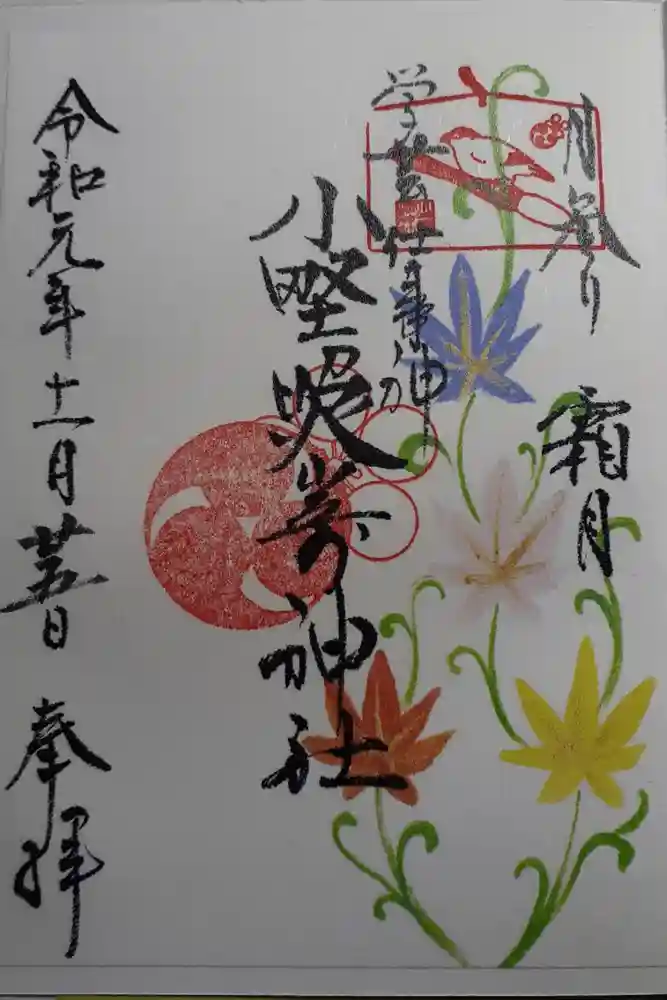 月参り 霜月
学芸仕事ノ神
小野照崎神社
令和元年十一月廿五日 奉拝